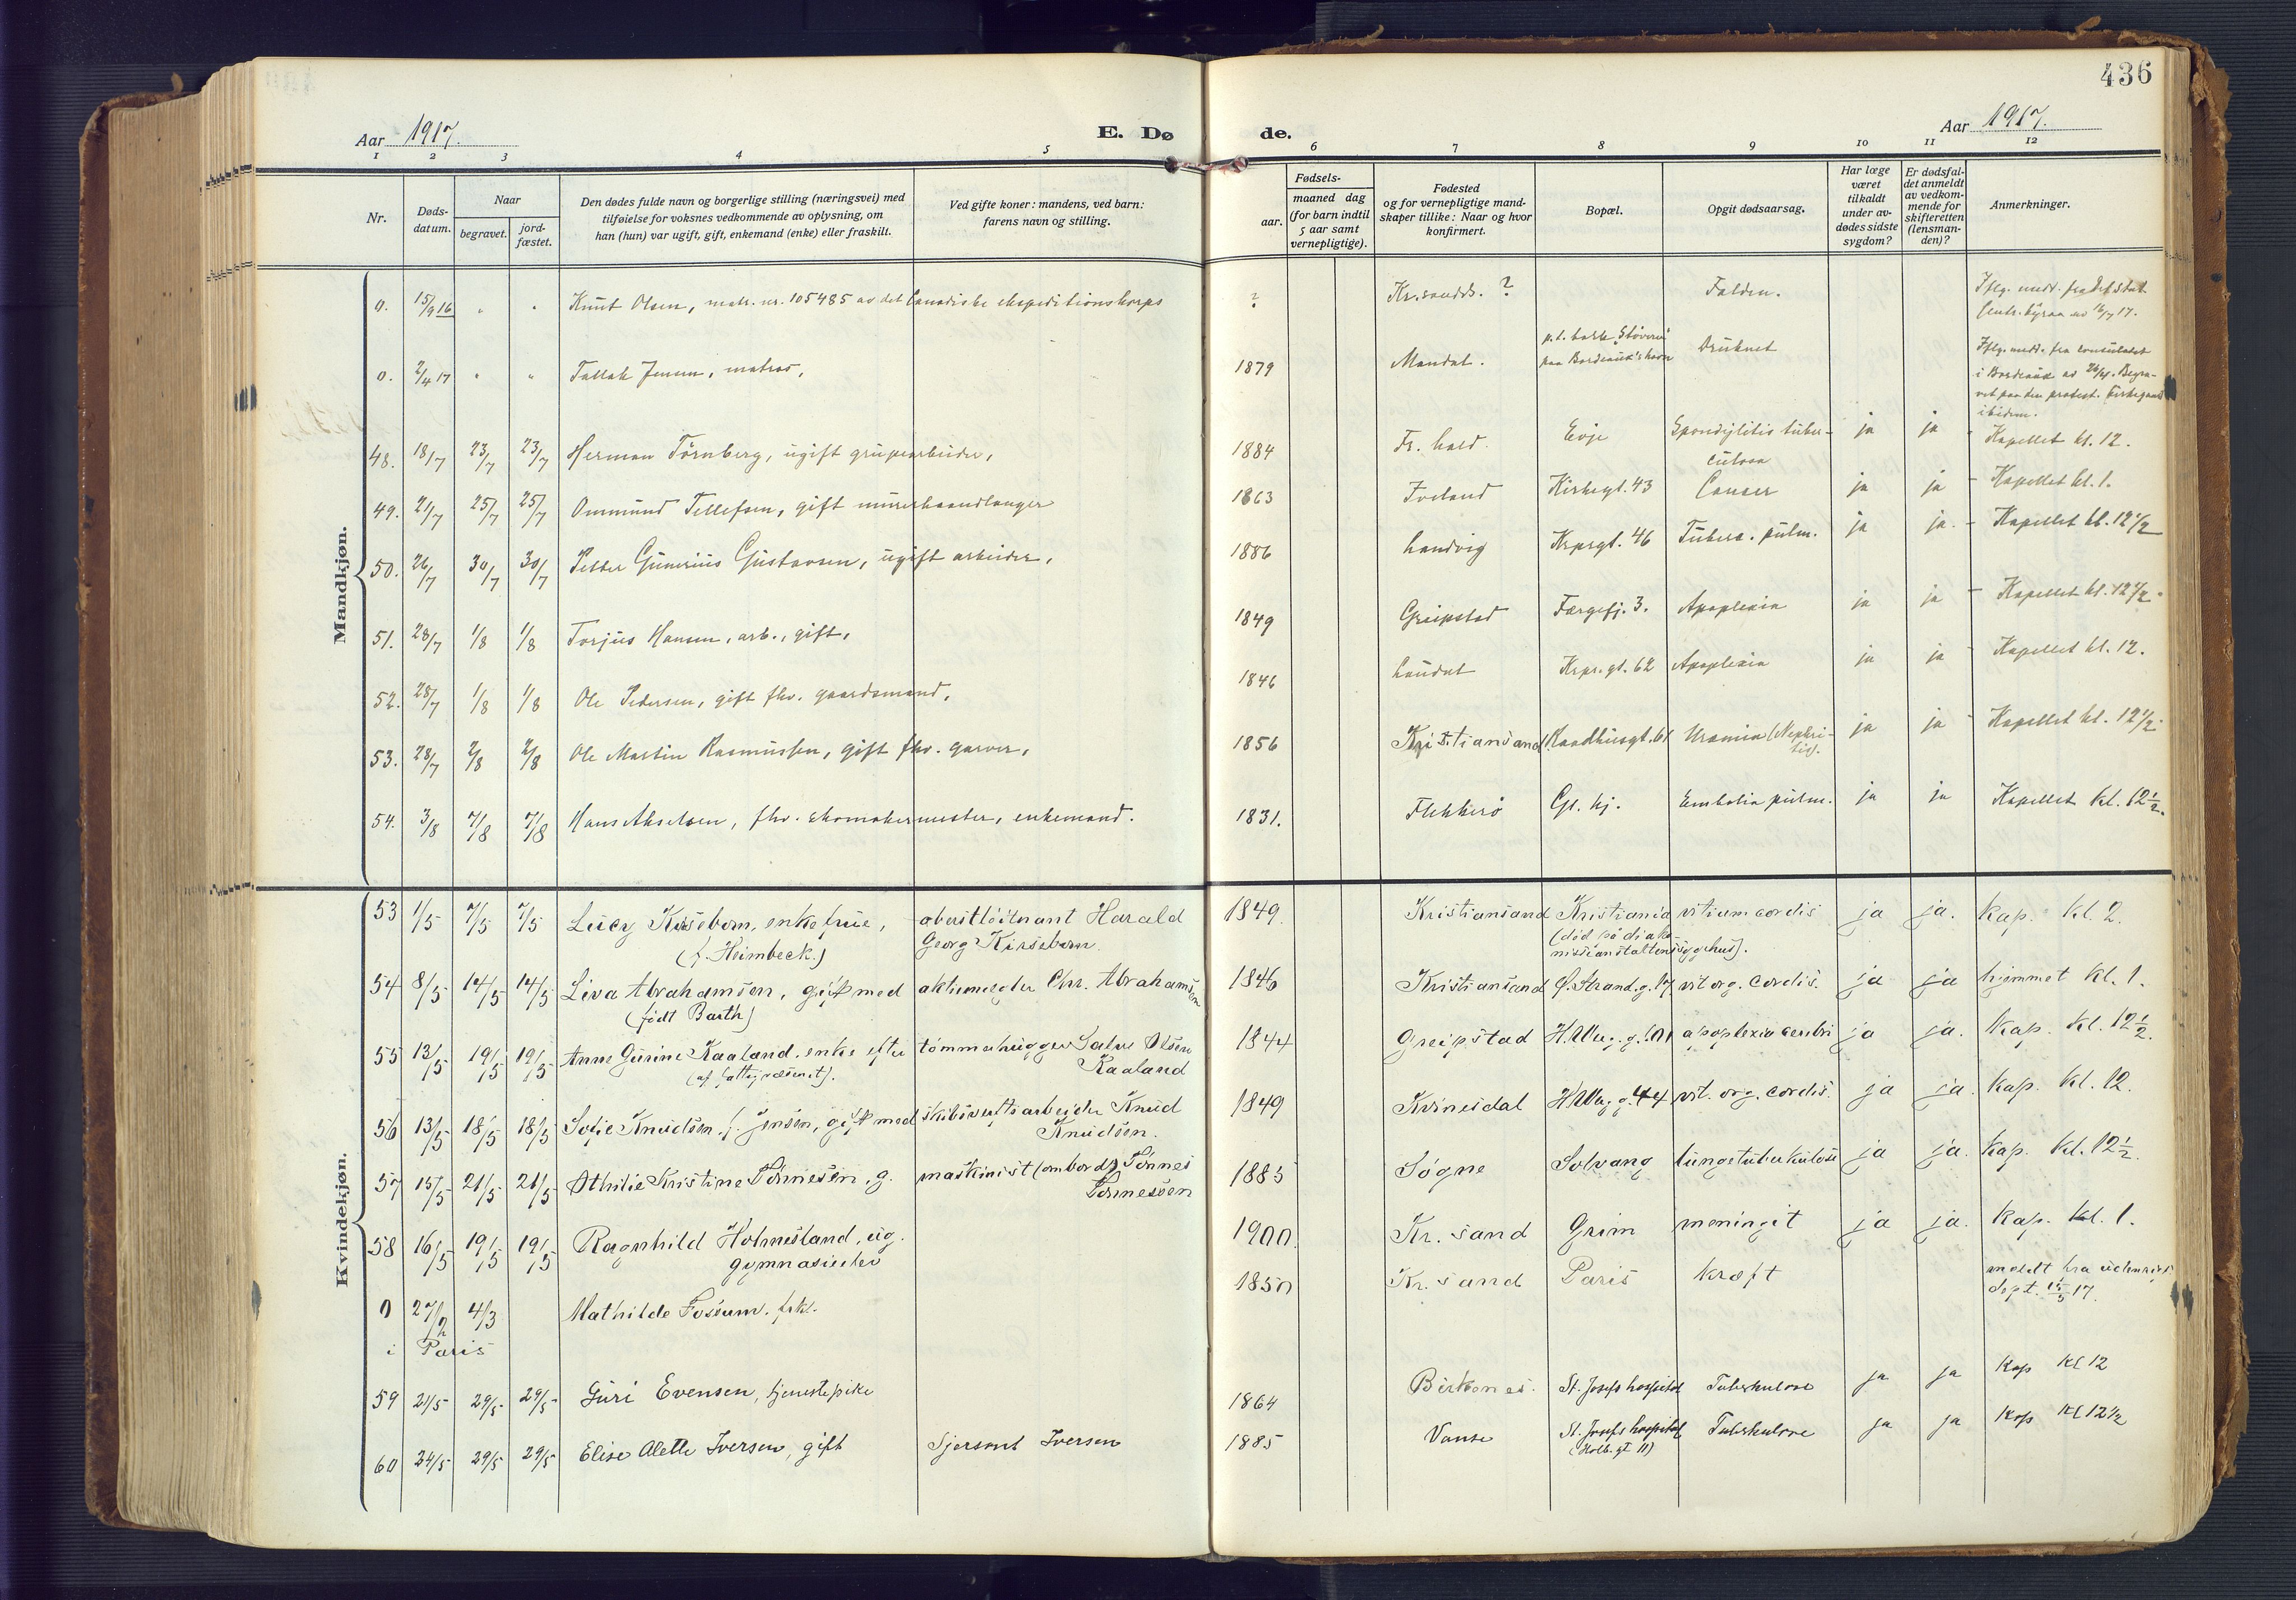 436
Aar 1917.
E. Dø
de.
Aar 1917.
1 2 3 4 5 6 7 8 9 10 11 12
Nr.
Døds-
datum.
Naar
begravet.
jord-
fæstet.
Den dødes fulde navn og borgerlige stilling (næringsvei) med
tilføielse for voksnes vedkommende av oplysning, om
han (hun) var ugift, gift, enkemand (enke) eller fraskilt.
Ved gifte koner: mandens, ved barn:
farens navn og stilling.
Fødsels-
aar.
maaned dag
(for barn indtil
5 aar samt
vernepligtige).
Fødested
og for vernepligtige mand-
skaper tillike: Naar og hvor
konfirmert.
Bopæl.
Opgit dødsaarsag.
Har læge
været
tilkaldt
under av-
dødes sidste
sygdom?
Er dødsfal-
det anmeldt
av vedkom-
mende for
skifteretten
(lensman-
den)?
Anmerkninger.
Mandkjøn.
0. 15/9 16 " " Knut Olsen, matr. nr. 105485 av det Canadiske ekspeditionskorps ? Kr.sand s. ? Falden.
0. 2/4 17 " " Tallak Jensen, matros, 1879 Mandal. Druknet
48. 18/7 23/7 23/7 Herman Törnberg, ugift grupearbeider, 1884 Fr. hald. Evje Spondylitis tuber-
culosa ja ja - Kapellet kl. 12.
49. 21/7 25/7 25/7 Ommund Tellefsen, gift murerhaandlanger 1863 Iveland Kirkegt. 43 Cancer ja ja - Kapellet kl. 1.
50. 26/7 30/7 30/7 Petter Gunerius Gustavsen, ugift arbeider, 1886 Landvig Krprgt. 46 Tuberc. pulm. ja ja. - Kapellet kl. 12 1/2
51. 28/7 1/8 1/8 Torjus Hansen, arb., gift, 1849 Greipstad Færgefj. 3. Apoplexia ja ja - Kapellet kl. 12 1/2.
52. 28/7 1/8 1/8 Ole Pedersen, gift fhv. gaardsmand, 1846 Laudal Krpr.gt. 62 Apoplexia ja ja - Kapellet kl. 12.
53. 28/7 2/8 2/8 Ole Martin Rasmussen, gift fhv. garver, 1856 Kristiansand Raadhusgt. 61 Uræmia (Nephri-
tis). ja ja - Kapellet kl. 12 1/2.
54. 3/8 7/8 7/8 Hans Akselsen, fhv. skomakermester, enkemand. 1831. Flekkerö Gl. hj. Embolia pulm. ja ja Kapellet kl. 12 1/2.
Kvindekjøn.
53 1/5 7/5 7/5 Lucy Kirsebom, enkefrue, oberstløitnant Harald 1849. Kristiansand Kristiania vitium cordis ja ja. Kap. kl. 2.
(f. Heimbeck.) Georg Kirsebom.
54 8/5 14/5 14/5 Liva Abrahamsen, gift med aktiemegler Chr. Abrahamsen 1846 Kristiansand Ø. Strand.g. 17 vit org. cordis. ja ja hjemmet kl. 1.
(født Barth)
55 13/5 19/5 19/5 Anne Gurine Kaaland. enke efter tømmerhugger Salve Olsen 1844 Greipstad apoplexia cerebri ja ja. Kap. kl. 12 1/2.
(af fattigvæsenet). Kaaland
56 13/5 18/5 18/5 Sofie Knudsen, f. Jensen, gift med skibsverftsarbeider Knud 1849 Kvinesdal vit. org. cordis. ja ja. Kap. kl. 12.
Knudsen.
57 15/5 21/5 21/5 Othilie Kristine Tønnesen, g. maskinist (ombord) Tønnes 1885 Søgne Solvang lungetuberkuløse ja ja. Kap. kl. 12 1/2.
Tønnessen
58 16/5 19/5 19/5 Ragnhild Holmesland, ug. 1900. Kr. sand Grim meningit ja ja. Kap. kl. 1.
gymnasieelev
0 27/2 4/3 Mathilde Fossum. frk. 1850 Kr. sand Paris kræft
i Paris
59 21/5 29/5 29/5 Guri Evensen, tjenestepike 1864 Birkenes. St. Josefs hospital Tuberkulose ja ja Kap kl 12
60 24/5 29/5 29/5 Elise Alette Iversen, gift Sjørsmt Iversen 1885 Vanse St. Josefs hospital Tuberkulose ja ja Kap kl 12 1/2
(Holb. gt. 11)